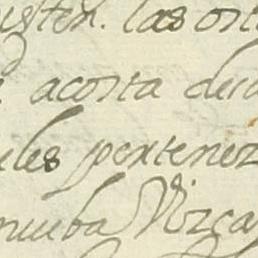 isten. las ort
acosta de la
ules pertenez
nueba Vizca